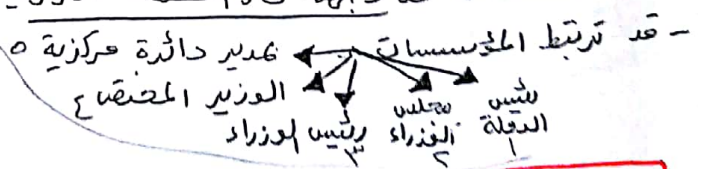 - قد ترتبط المؤسسات بمدير دائرة مركزية ٥
الوزير المختص ٤
رئيس الدولة ١ مجلس الوزراء ٢ رئيس الوزراء ٣